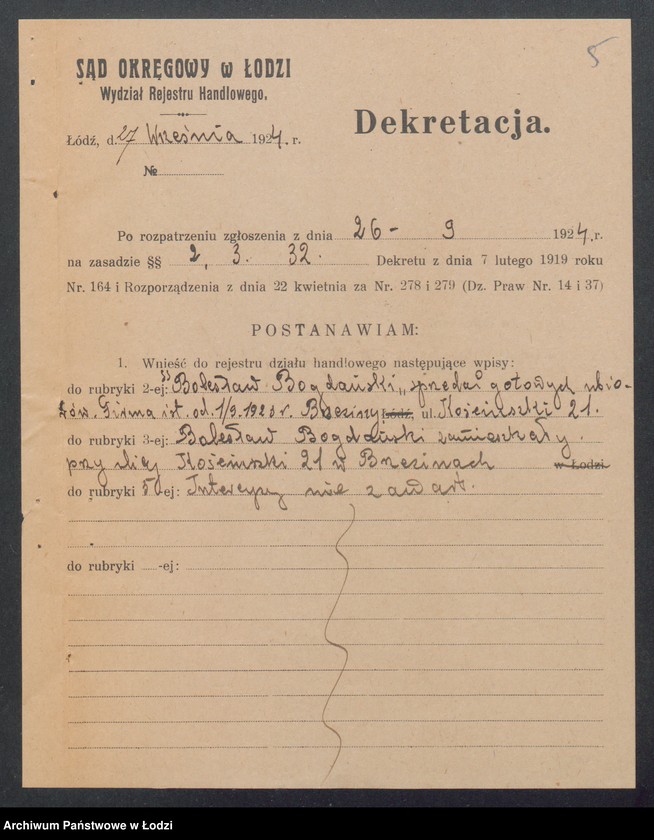 5
SĄD OKRĘGOWY w ŁODZI
Wydział Rejestru Handlowego.
Dekretacja.
Łódź, d. 27 Września 1924. r.
№
Po rozpatrzeniu zgłoszenia z dnia 26 - 9 1924. r.
na zasadzie §§ 2, 3. 32. Dekretu z dnia 7 lutego 1919 roku
Nr. 164 i Rozporządzenia z dnia 22 kwietnia za Nr. 278 i 279 (Dz. Praw Nr. 14 i 37)
POSTANAWIAM:
1. Wnieść do rejestru działu handlowego następujące wpisy:
do rubryki 2-ej: "Bolesław Bogdański" sprzedaż gotowych ubio-
rów. Firma ist. od. 1/9. 1920 r. Brzeziny Łódź, ul. Kościuszki 21.
do rubryki 3-ej: Bolesław Bogdański zamieszkały
przy ulicy Kościuszki 21 w Brzezinach w Łodzi
do rubryki 5-ej: Intercyzy nie zawarł.
do rubryki -ej:
Archiwum Państwowe w Łodzi